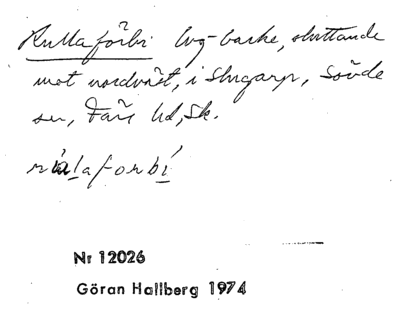 Rulla förbi lvg-backe, sluttande
mot nordväst, i Skogarp, Sövde
sn, Färs hd, Sk.
Nr 12026
Göran Hallberg 1974